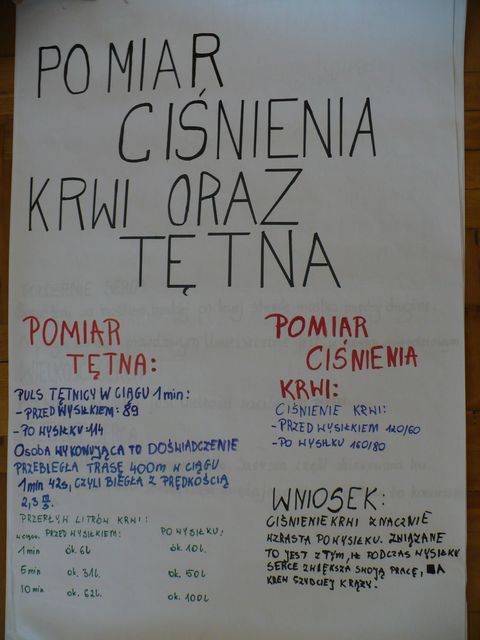 POMIAR
CIŚNIENIA
KRWI ORAZ
TĘTNA
POMIAR
TĘTNA:
PULS TĘTNICY W CIĄGU 1 min:
- PRZED WYSIŁKIEM: 89
- PO WYSIŁKU: 114
OSOBA WYKONUJĄCA TO DOŚWIADCZENIE
PRZEBIEGŁA TRASĘ 400m W CIĄGU
1 min 42s, CZYLI BIEGŁA Z PRĘDKOŚCIĄ
2,3 m/s.
PRZEPŁYW LITRÓW KRWI:
W CIĄGU: PRZED WYSIŁKIEM: PO WYSIŁKU:
1 min ok. 6l ok. 10l.
5 min ok. 31l. ok. 50l
10 min ok. 62l. ok. 100l
POMIAR
CIŚNIENIA
KRWI:
CIŚNIENIE KRWI:
- PRZED WYSIŁKIEM 120/60
- PO WYSIŁKU 160/80
WNIOSEK:
CIŚNIENIE KRWI ZNACZNIE
WZRASTA PO WYSIŁKU. ZWIĄZANE
TO JEST Z TYM, IŻ PODCZAS WYSIŁKU
SERCE ZWIĘKSZA SWOJĄ PRACĘ, A
KREW SZYBCIEJ KRĄŻY.